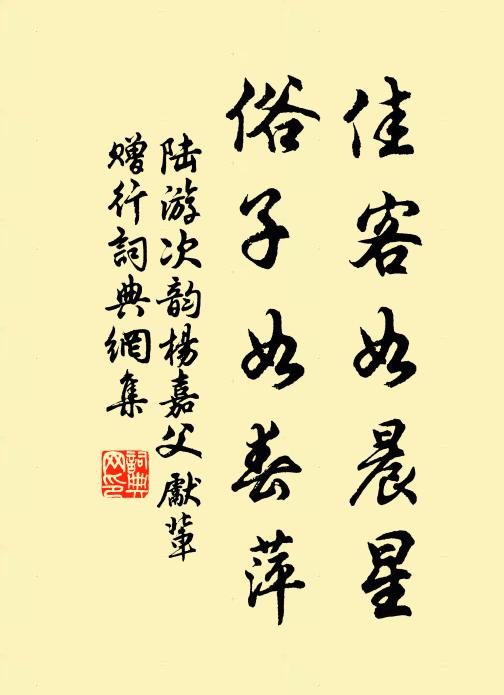 佳客如晨星
俗子如春萍
陆游次韵楊嘉父獻輩
赠行詞典網集
詞典网印